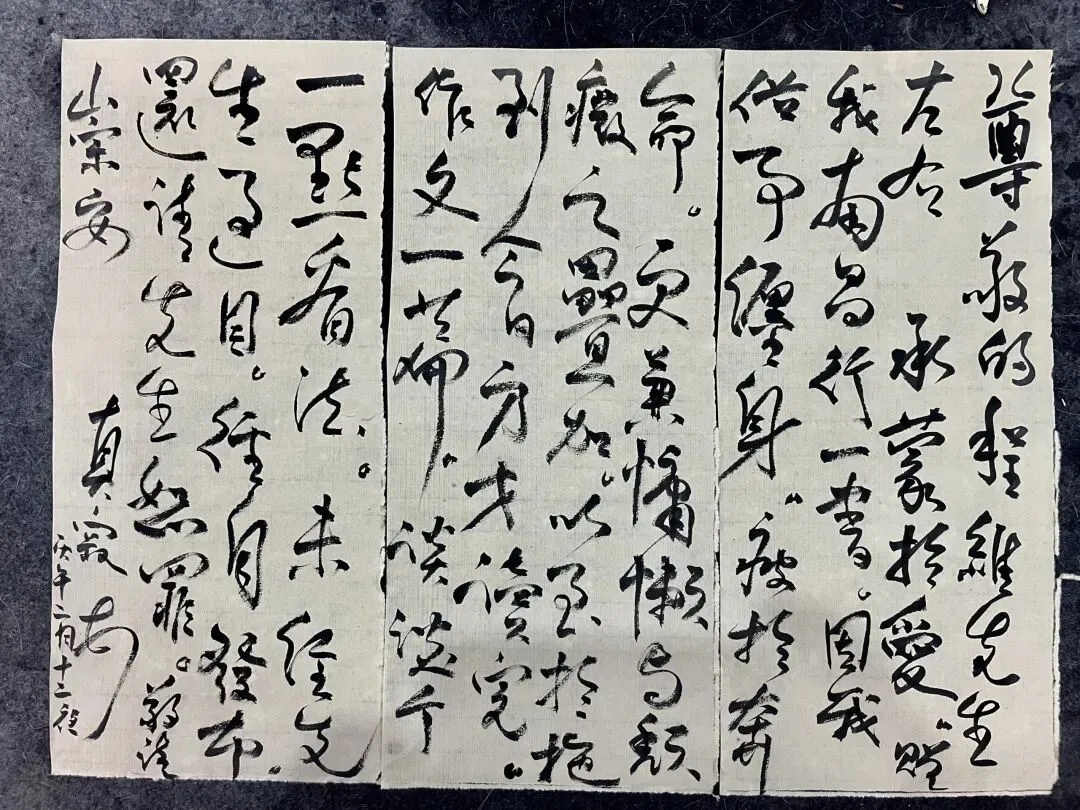 尊敬的程維先生
左右 承蒙於愛。贈
我南昌行一書。因我
俗事纏身。疲於奔
命。更兼慵懶与頹
癈之疊加。以至於拖
到今日方才讀完。
作文一篇。談談个
一點看法。未經先
生過目。徑自發布。
還請先生恕罪。敬請
崇安
真寂
丙午二月十二夜